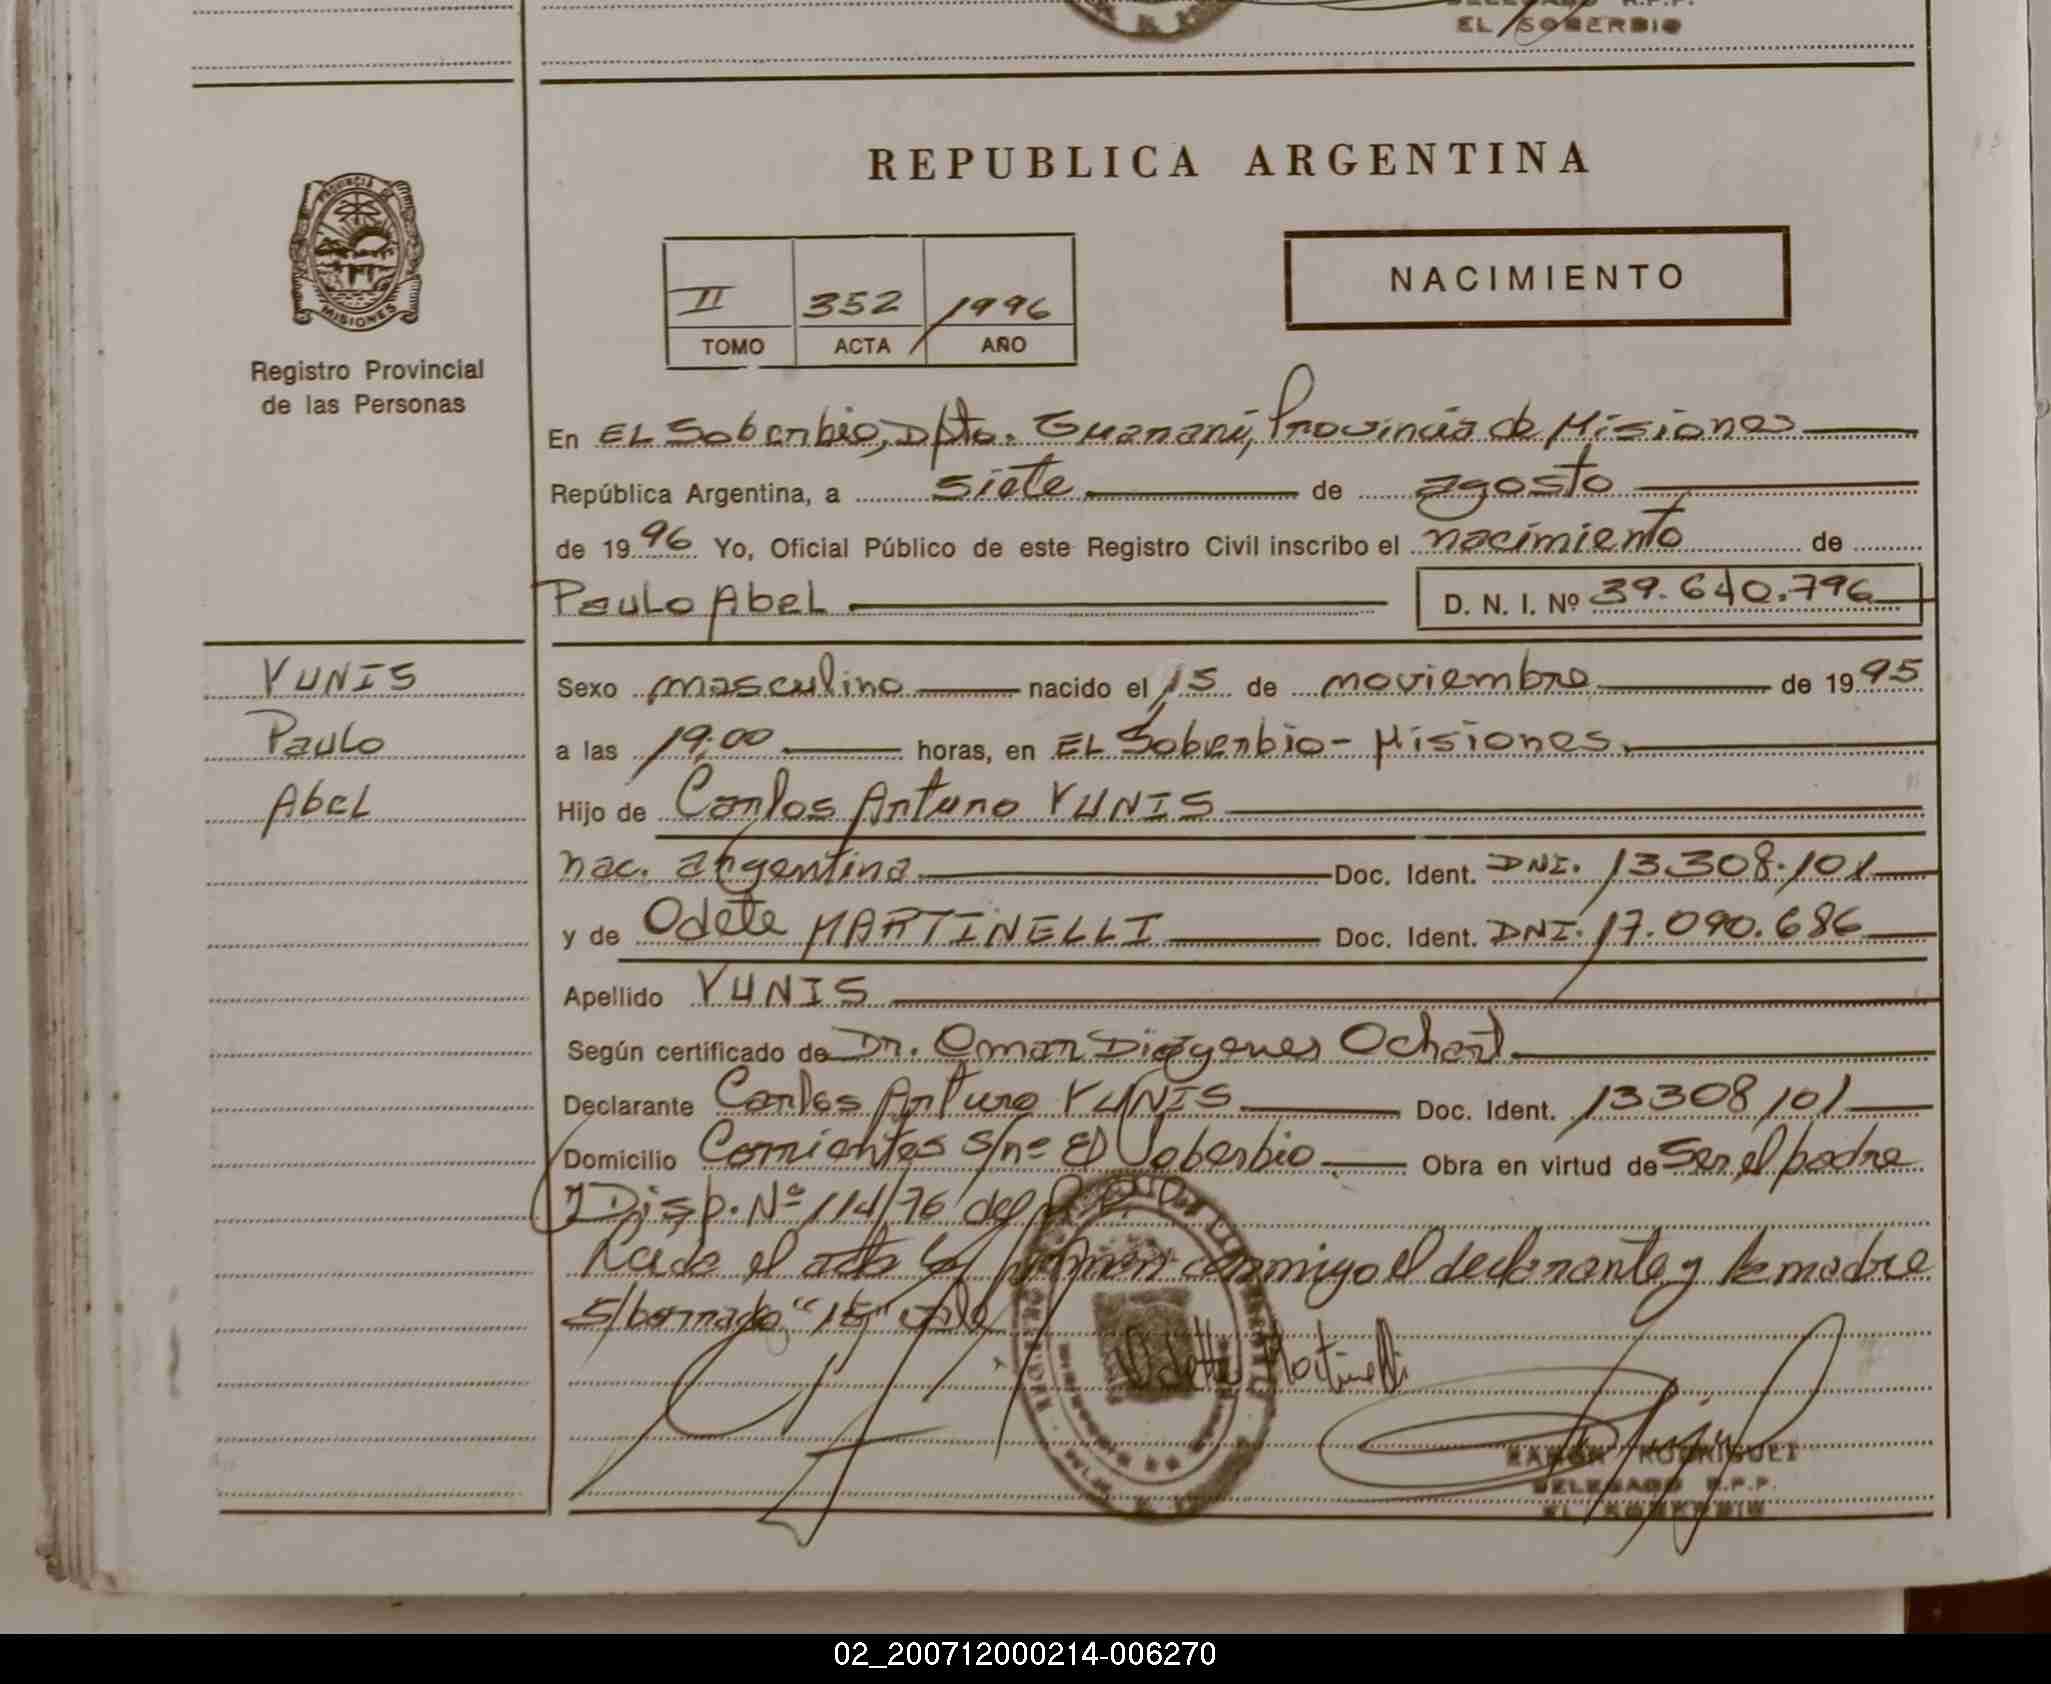 EL SOBERBIO
REPUBLICA ARGENTINA
PROVINCIA DE
MISIONES
Registro Provincial
de las Personas
II 352 1996
TOMO ACTA AÑO
NACIMIENTO
En EL Soberbio, Dpto. Guarani, Provincia de Misiones
República Argentina, a siete de agosto
de 1996 Yo, Oficial Público de este Registro Civil inscribo el nacimiento de
Paulo Abel D. N. I. Nº 39.640.796
YUNIS
Paulo
Abel
Sexo masculino nacido el 15 de noviembre de 1995
a las 19:00 horas, en EL Soberbio - Misiones
Hijo de Carlos Arturo YUNIS
nac. argentina Doc. Ident. DNI. 13.308.101
y de Odete MARTINELLI Doc. Ident. DNI. 17.090.686
Apellido YUNIS
Según certificado de Dr. Omar Diógenes
Declarante Carlos Arturo YUNIS Doc. Ident. 13308101
Domicilio Corrientes s/nº El Soberbio Obra en virtud de ser el padre
y Disp. Nº 114/76 del
el acta firman conmigo el declarante y la madre
s/borrado "15" vale
Odette Martinelli
RAMON RODRIGUEZ
DELEGADO R.P.P.
EL SOBERBIO
02_200712000214-006270